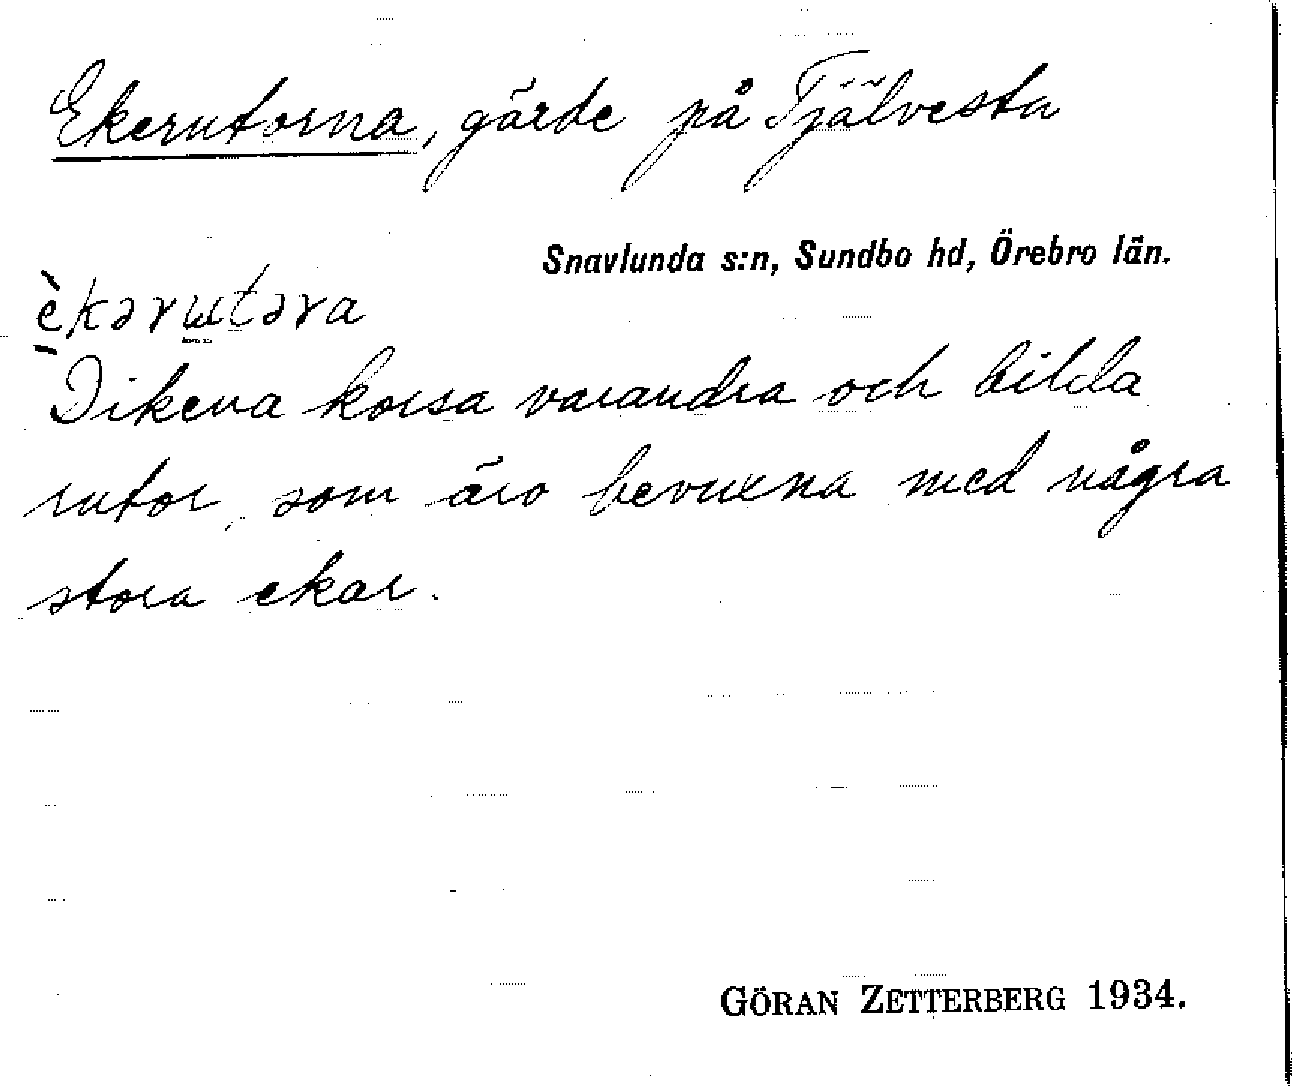 Ekerutorna, gärde på Tjälvesta
Snavlunda s:n, Sundbo hd, Örebro län.
èkərɯtəra
Dikena korsa varandra och bilda
rutor, som äro bevuxna med några
stora ekar.
GÖRAN ZETTERBERG 1934.